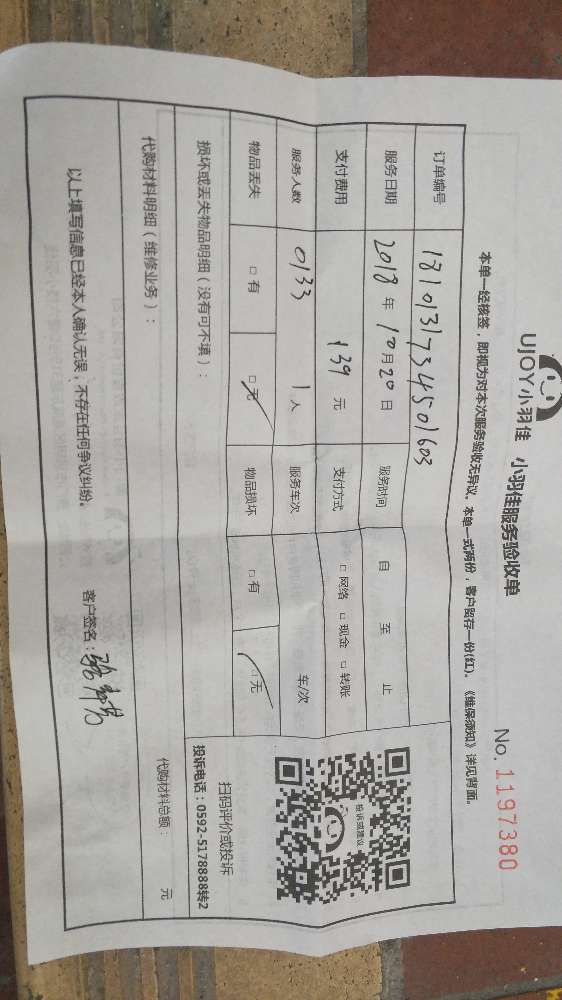 UJOY小羽佳 小羽佳服务验收单 No. 1197380
本单一经核签，即视为对本次服务验收无异议。本单一式两份，客户留存一份(红)。《维保须知》详见背面。
订单编号 1810131734501603
服务日期 2018年10月20日 服务时间 自 至 止
支付费用 139元 支付方式 □网络 □现金 □转账
服务人数 0133 1人 服务车次 车/次
物品丢失 □有 □无 物品损坏 □有 □无
投诉或建议
扫码评价或投诉
投诉电话：0592-5178888转2
损坏或丢失物品明细（没有可不填）：
代购材料明细（维修业务）： 代购材料总额： 元
以上填写信息已经本人确认无误，不存在任何争议纠纷。 客户签名：